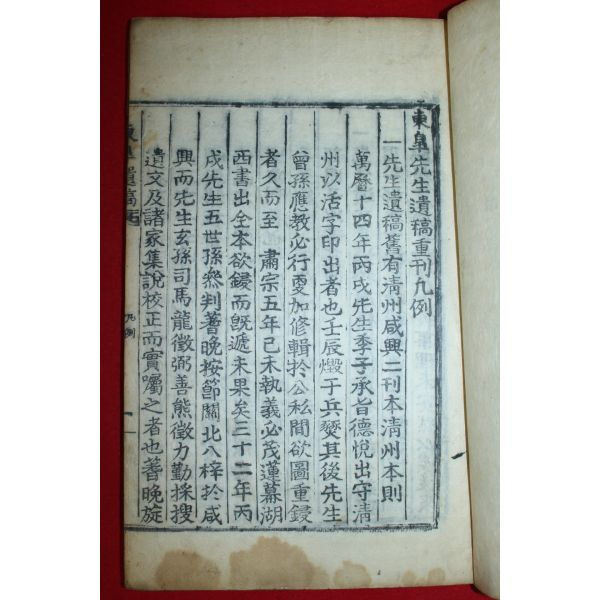 東皐先生遺稿重刊凡例
一先生遺稿舊有淸州咸興二刊本淸州本則
萬曆十四年丙戌先生季子承旨德悅出守淸
州以活字印出者也壬辰燬于兵燹其後先生
曾孫應敎必行更加修輯於公私間欲圖重鋟
者久而至 肅宗五年己未執義必茂蓮幕湖
西書出全本欲鋟而旣遞未果矣三十二年丙
戌先生五世孫參判蓍晩按節關北入梓於咸
興而先生玄孫司馬龍徵弼善熊徵力勤採搜
遺文及諸家集說校正而實囑之者也蓍晩旋
東皐遺稿
凡例
一